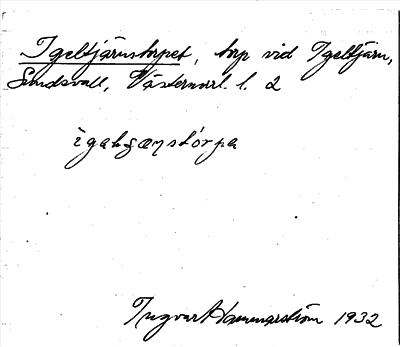 Igeltjärnstorpet, torp vid Igeltjärn,
Sundsvall, Västernorrl. l. 2
ìgalꞔænstórpa
Ingvar Hammarström 1932